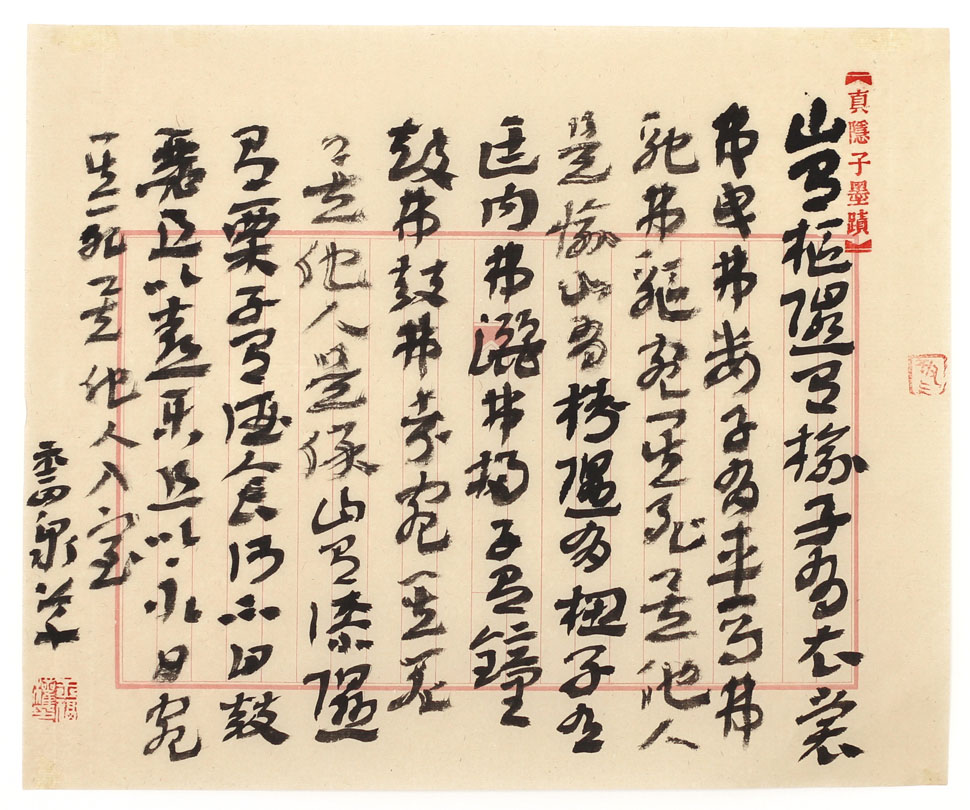 【真隱子墨蹟】
山有樞隰有榆子有衣裳
弗曳弗婁子有車馬弗
馳弗驅宛其死矣他人
是愉山有栲隰有杻子有
廷內弗灑弗掃子有鐘
鼓弗鼓弗考宛其死
矣他人是保山有漆隰
有栗子有酒食何不日鼓
瑟且以喜樂且以永日宛
其死矣他人入室